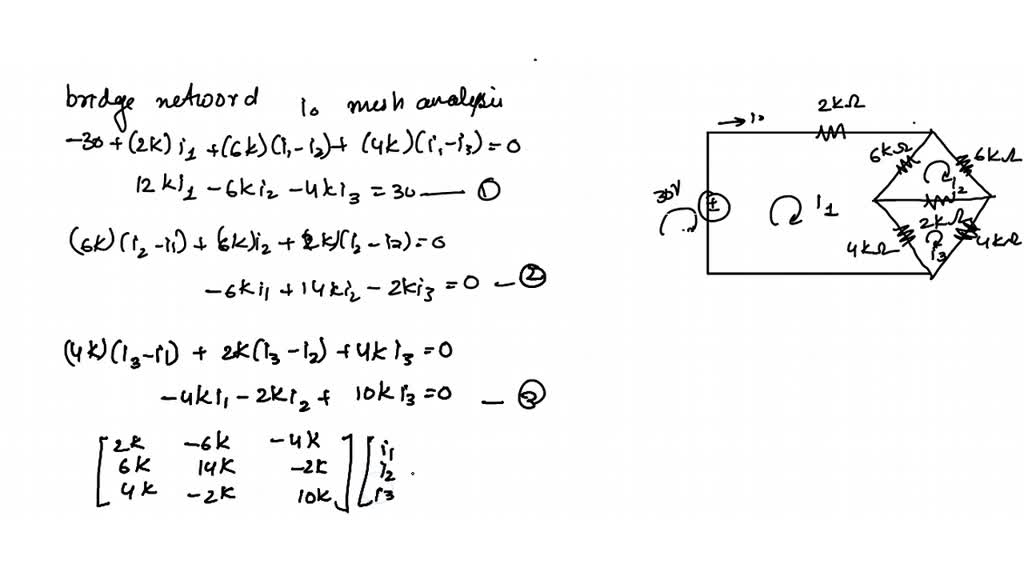 bridge netword io mesh analysis
-30 + (2k) i1 + (6k)(i1-i2) + (4k)(i1-i3) = 0
12ki1 - 6ki2 - 4ki3 = 30 — ①
(6k)(i2-i1) + (6k)i2 + (2k)(i2-i3) = 0
-6ki1 + 14ki2 - 2ki3 = 0 — ②
(4k)(i3-i1) + 2k(i3-i2) + 4ki3 = 0
-4ki1 - 2ki2 + 10ki3 = 0 — ③
2k -6k -4k i1
6k 14k -2k i2
4k -2k 10k i3
2kΩ
io
6kΩ 6kΩ
i2
30V + i1
2kΩ
4kΩ i3 4kΩ